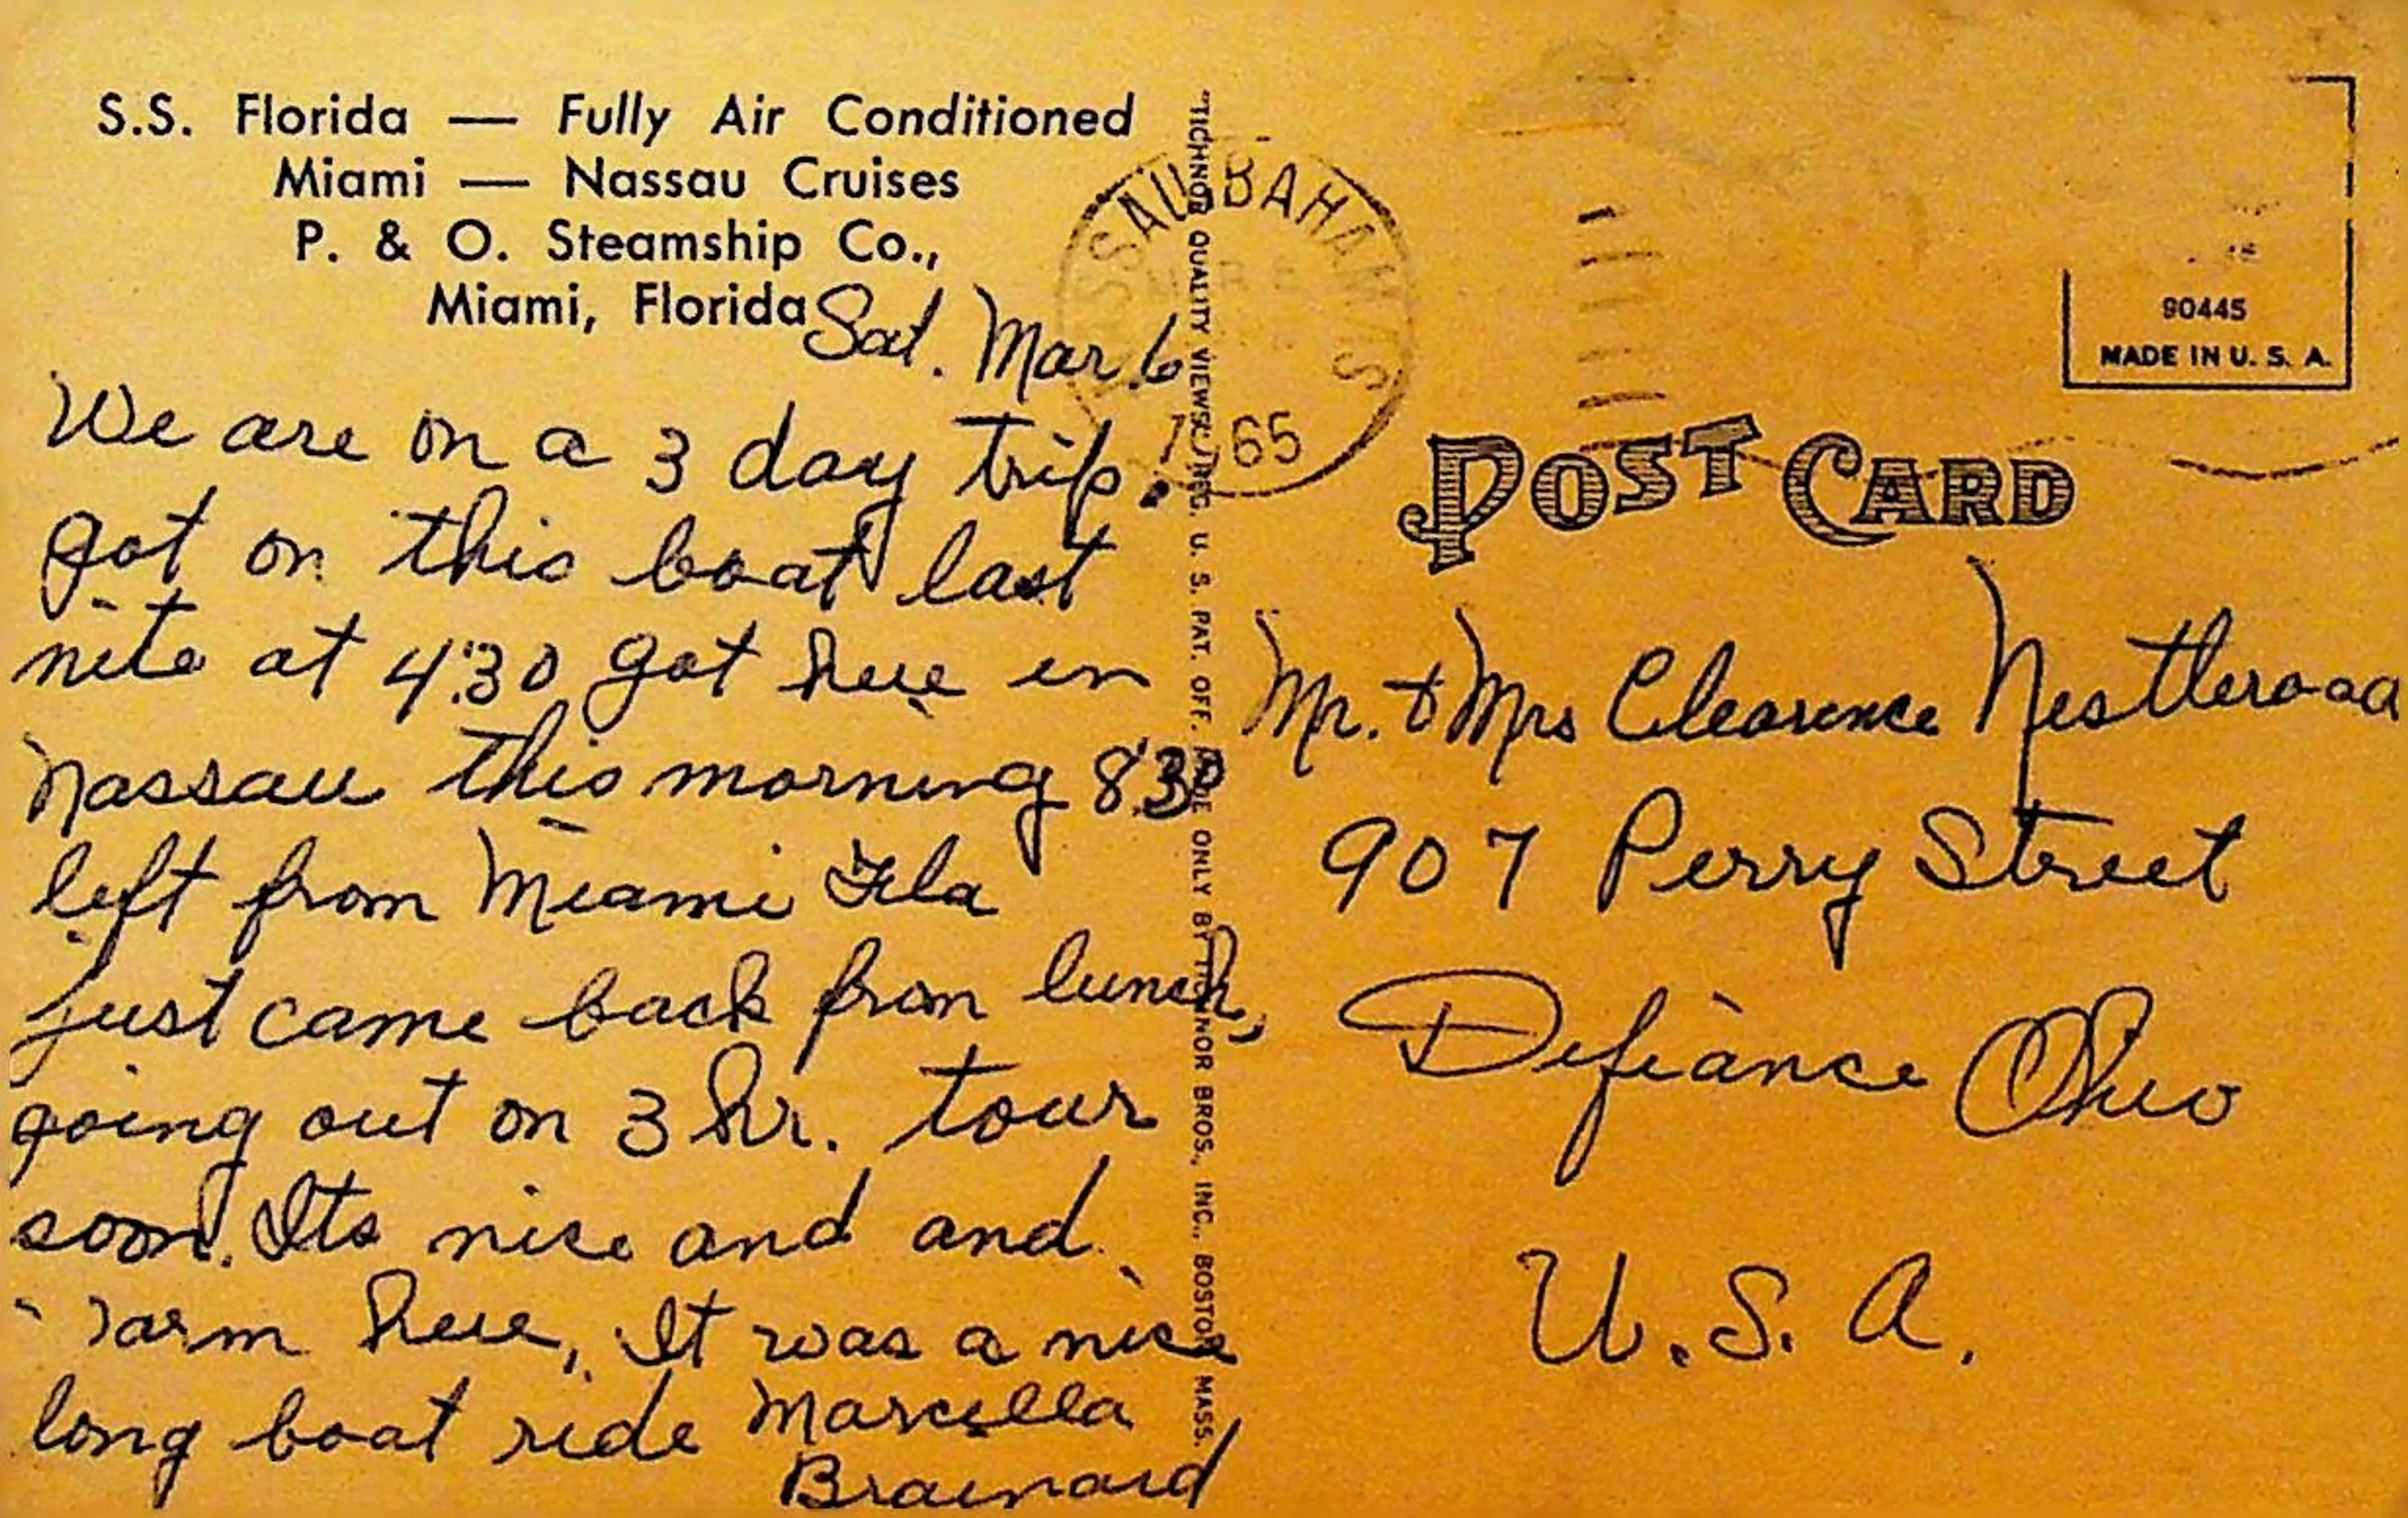 S.S. Florida — Fully Air Conditioned
Miami — Nassau Cruises
P. & O. Steamship Co.,
Miami, Florida
Sat. Mar. 6
We are on a 3 day trip.
got on this boat last
nite at 4:30 got here in
Nassau this morning 8:30
left from Miami Fla
just came back from lunch,
going out on 3 hr. tour
soon. Its nice and and
warm here, It was a nice
long boat ride Marcella
Brainard
"TICHNOR QUALITY VIEWS," REG. U. S. PAT. OFF. MADE ONLY BY TICHNOR BROS., INC., BOSTON MASS.
NASSAU BAHAMAS
65
90445
MADE IN U. S. A.
POST CARD
Mr. & Mrs Clearence
907 Perry Street
Defiance Ohio
U.S.A.